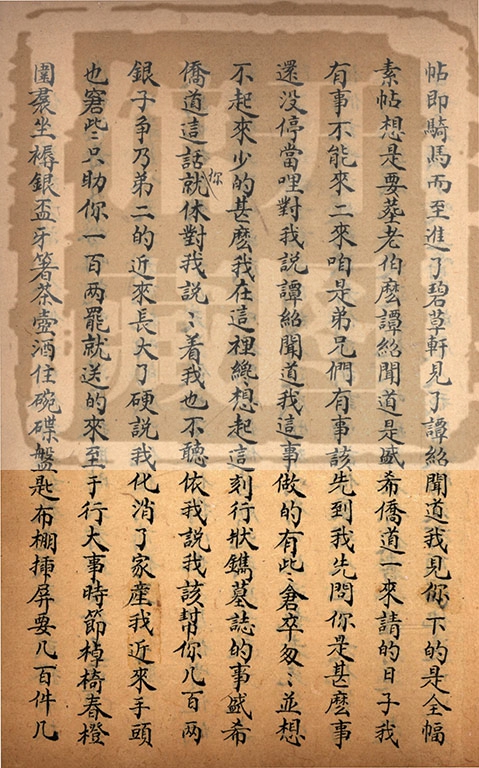 帖即騎馬而至進了碧草軒見了譚紹聞道我見你下的是全幅
素帖想是要塟老伯麽譚紹聞道是盛希僑道一來請的日子我
有事不能來二來咱是弟兄們有事該先到我先問你是甚麽事
還没停當哩對我説譚紹聞道我這事做的有些〻倉卒匆〻並想
不起來少的甚麽我在這裡纔想起這刻行狀鐫墓誌的事盛希
僑道這話你就休對我説〻着我也不聽依我説我該幫你几百两
銀子争乃弟二的近來長大了硬説我化消了家産我近來手頭
也窘些〻只助你一百两罷就送的來至于行大事時節樽椅春橙
圍裙坐褥銀盃牙箸茶壺酒住碗碟盤匙布棚揷屏要几百件几